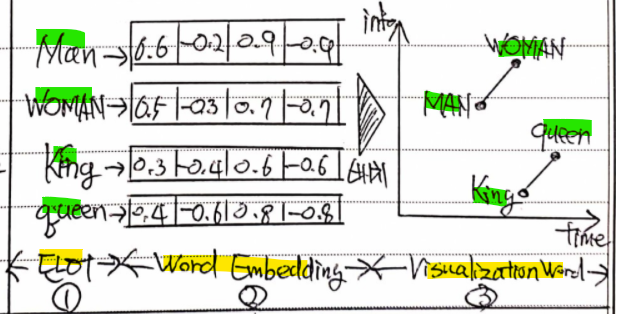 Man → 0.6 -0.2 0.9 -0.9
WOMAN → 0.5 -03 0.7 -0.7
King → 0.3 -0.4 0.6 -0.6
queen → 0.4 -0.6 0.8 -0.8
WOMAN
MAN
queen
King
time
Word Embedding
Visualization Word
① ② ③